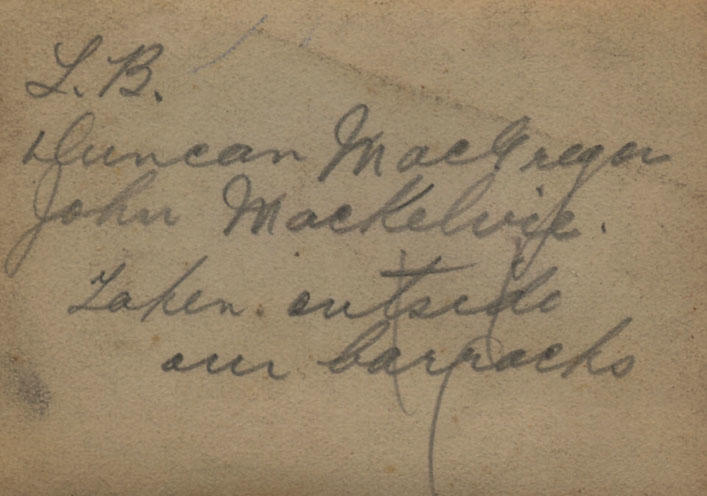 L.B.
Duncan MacGregor
John MacKelvie.
Taken outside
our barracks